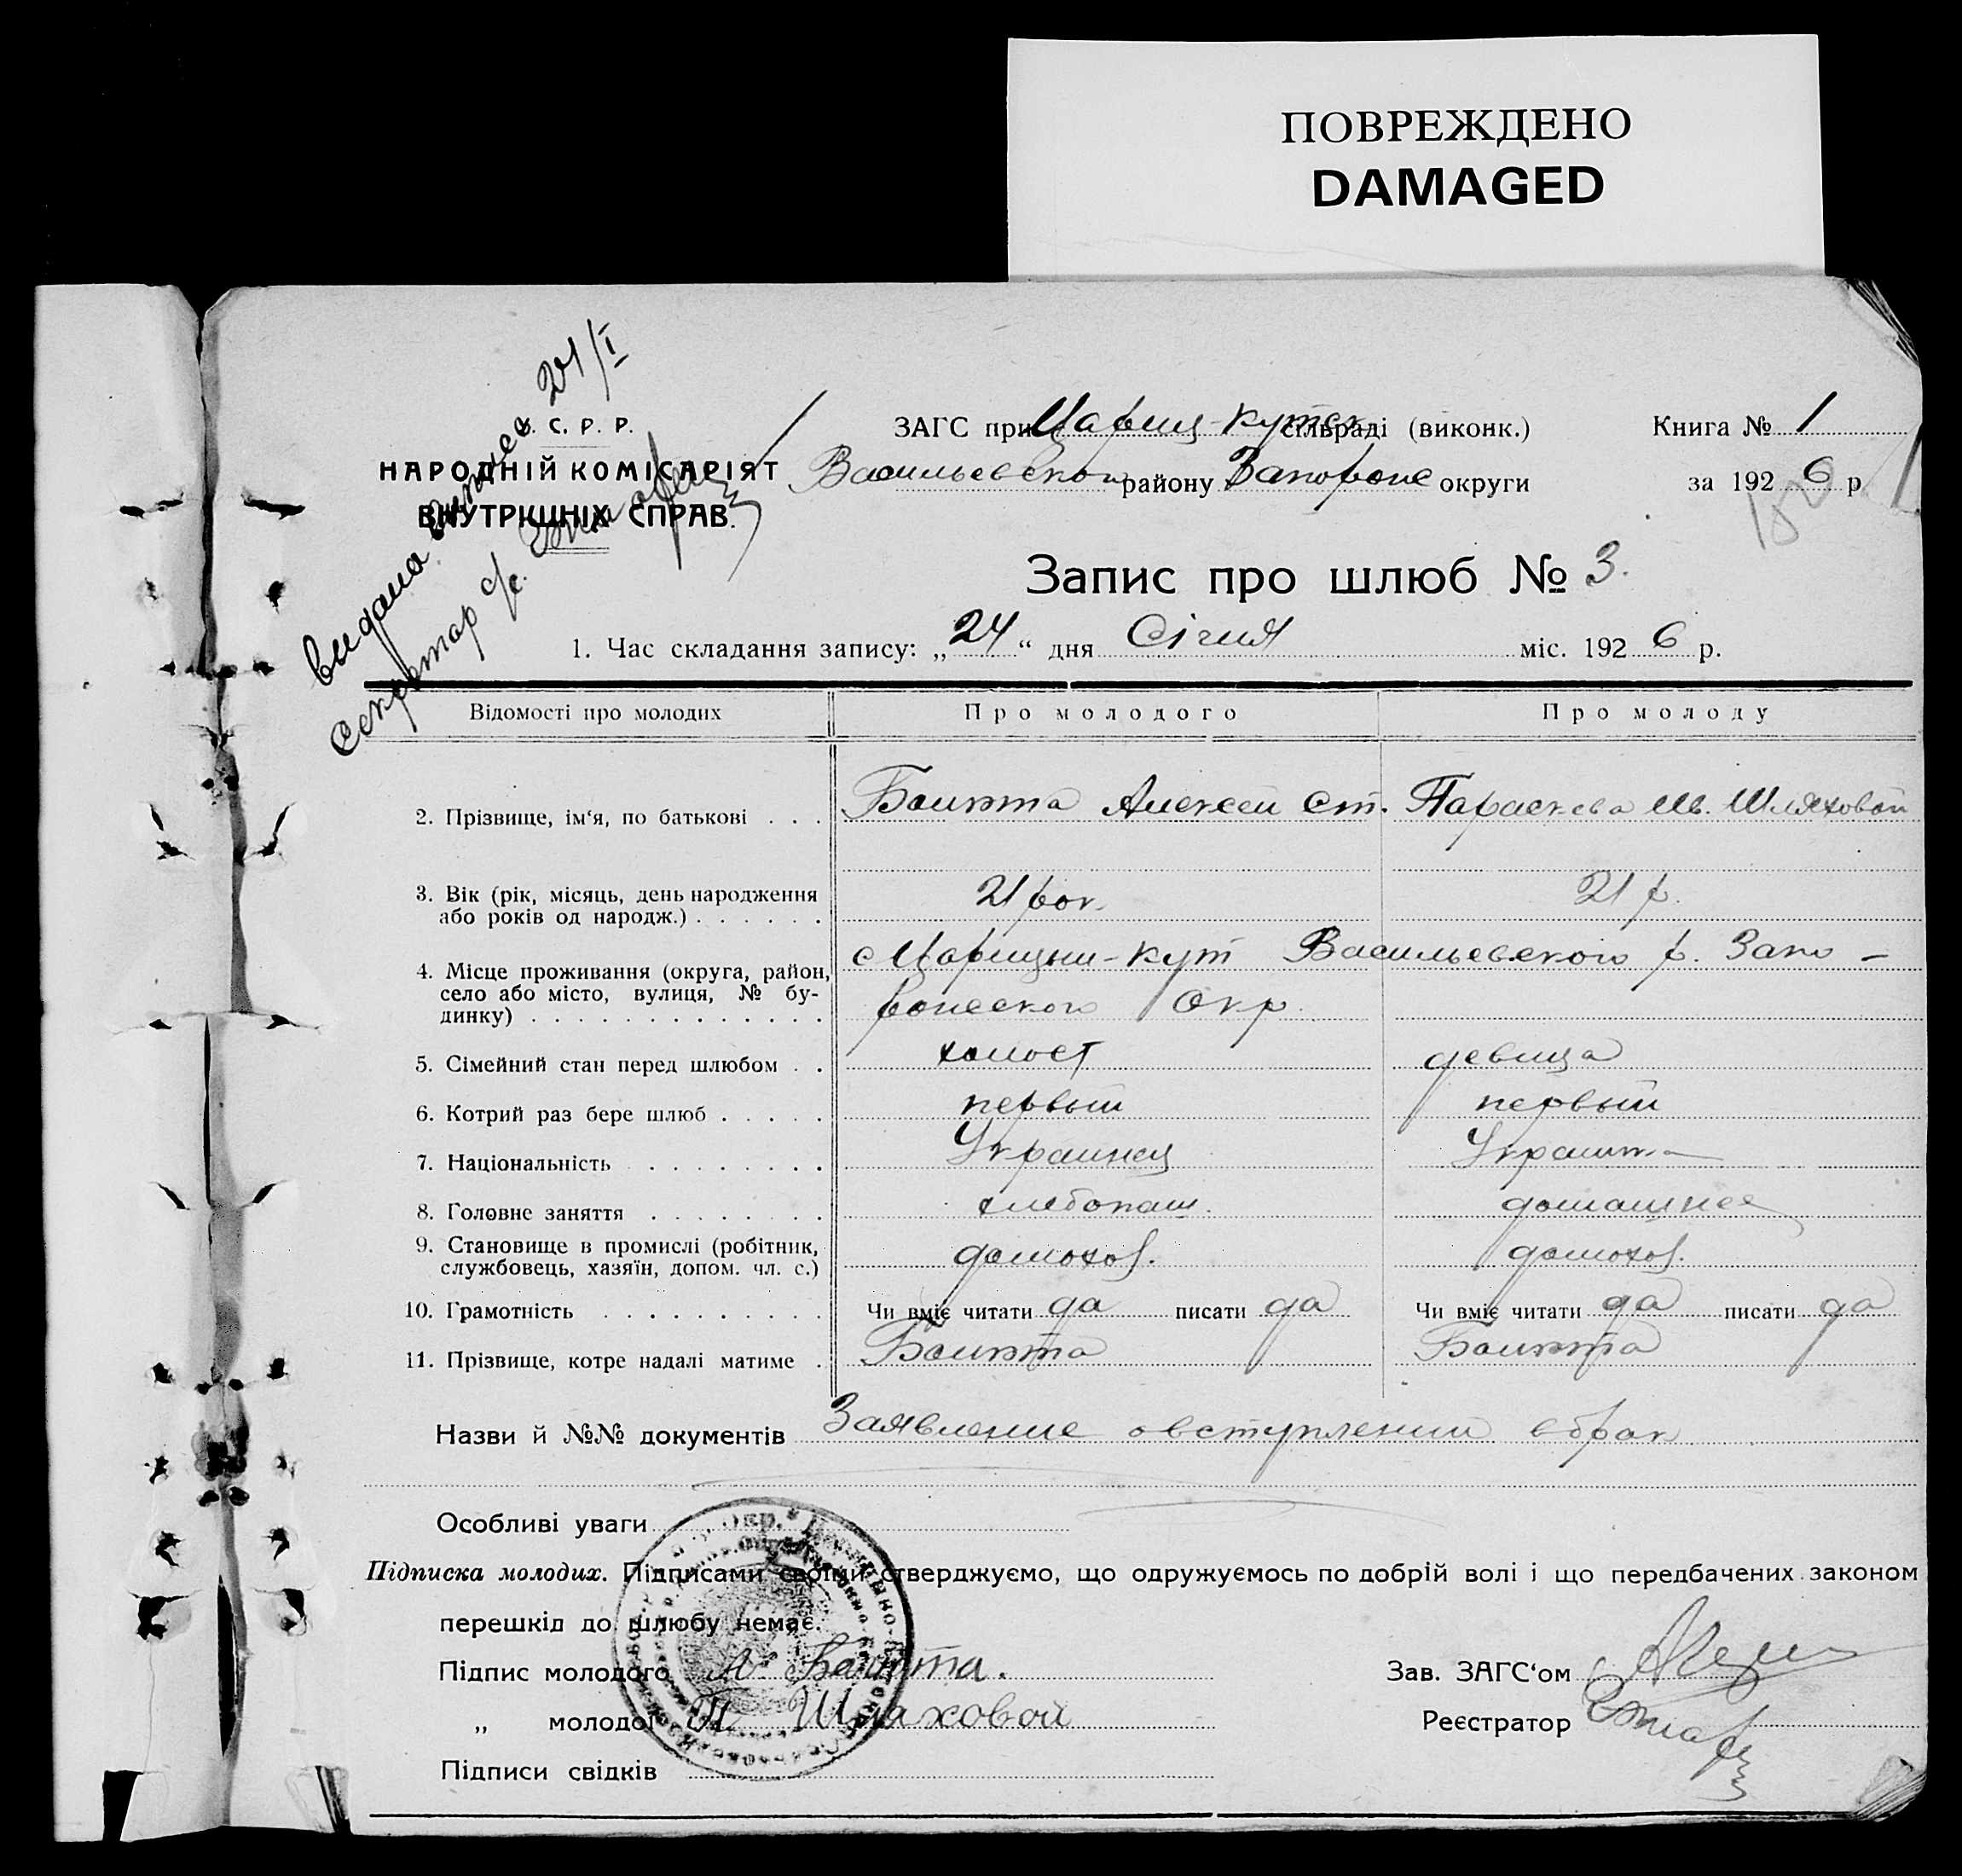 ПОВРЕЖДЕНО
DAMAGED
видана
секретар с/с.
24/I
С. Р. Р.
НАРОДНІЙ КОМІСАРІЯТ
ВНУТРІШНІХ СПРАВ.
ЗАГС при Цариц-Кутск сільраді (виконк.)
Книга № 1
Васильевском району Запорож округи
за 1926 р
Запис про шлюб № 3.
1. Час складання запису: „24“ дня Січня міс. 1926 р.
Відомості про молодих Про молодого Про молоду
2. Прізвище, ім‘я, по батькові . . . Алексей Ст. Параскева Ив. Шляховой
3. Вік (рік, місяць, день народження
або років од народж.) . . . . . . 21 рок. 21 р.
4. Місце проживання (округа, район,
село або місто, вулиця, № бу-
динку) . . . . . . . . . . . . .
с Царицын-Кут Васильевского р. Запо-
рожского Окр.
5. Сімейний стан перед шлюбом . . холост девица
6. Котрий раз бере шлюб . . . . . первый первый
7. Національність . . . . . . . . Украинец Украинка
8. Головне заняття . . . . . . . . хлебопаш. домашнее
9. Становище в промислі (робітник,
службовець, хазяїн, допом. чл. с.) домохоз. домохоз.
10. Грамотність . . . . . . . . . . Чи вміє читати да писати да Чи вміє читати да писати да
11. Прізвище, котре надалі матиме .
Назви й №№ документів Заявление о вступлении в брак
Особливі уваги
Підписка молодих. Підписами своїми стверджуємо, що одружуємось по добрій волі і що передбачених законом
перешкід до шлюбу немає.
Підпис молодого А.
Зав. ЗАГС‘ом
„ молодої П. Шляховой
Реєстратор
Підписи свідків